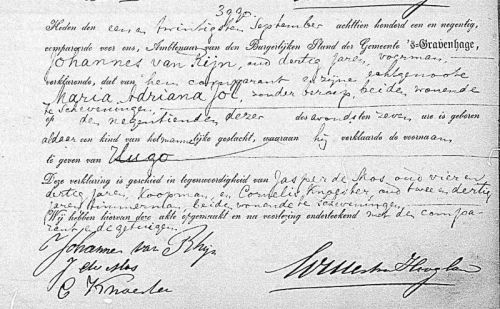 399
Heden den eenen twintigsten September achttien honderd een en negentig,
compareerde voor ons, Ambtenaar van den Burgerlijken Stand der Gemeente 's-Gravenhage,
Johannes van Rijn, oud dertig jaren, voerman,
verklarende, dat van hem comparant en zijne echtgenoote
Maria Adriana Jol, zonder beroep, beiden wonende
te Scheveningen,
op den negentienden dezer des avonds ten zeven ure is geboren
aldaar een kind van het mannelijke geslacht, waaraan hij verklaarde de voornaam
te geven van Hugo
Deze verklaring is geschied in tegenwoordigheid van Jasper de Mos, oud vier en
dertig jaren, Koopman, en Cornelis Knoester, oud twee en dertig
jaren, timmerman, beiden wonende te Scheveningen.
Wij hebben hiervan deze akte opgemaakt en na voorlezing onderteekend met den compa-
rant en de getuigen.
Johannes van Rhijn
J de Mos
C Knoester